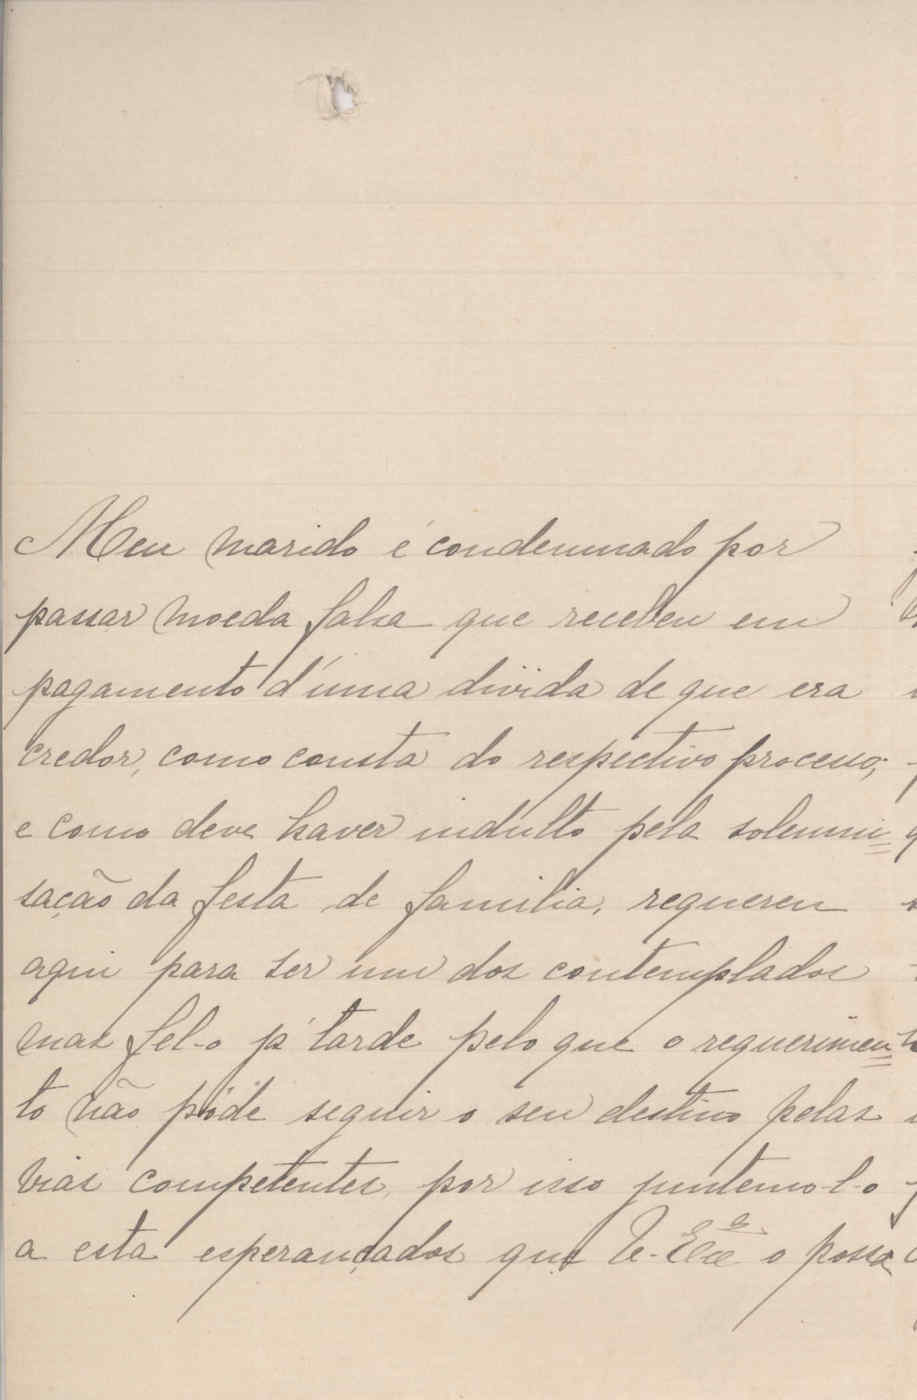 Meu marido é condemnado por
passar moeda falsa que recebeu em
pagamento d'uma divida de que era
credor, como consta do respectivo processo;
e como deve haver indulto pela solemni=
sação da festa de familia, requereu
aqui para ser um dos contemplados
mas fel-o já tarde pelo que o requerimen=
to não póde seguir o seu destino pelas
vias competentes, por isso juntemol-o
a esta esperançados que V. Exª o possa